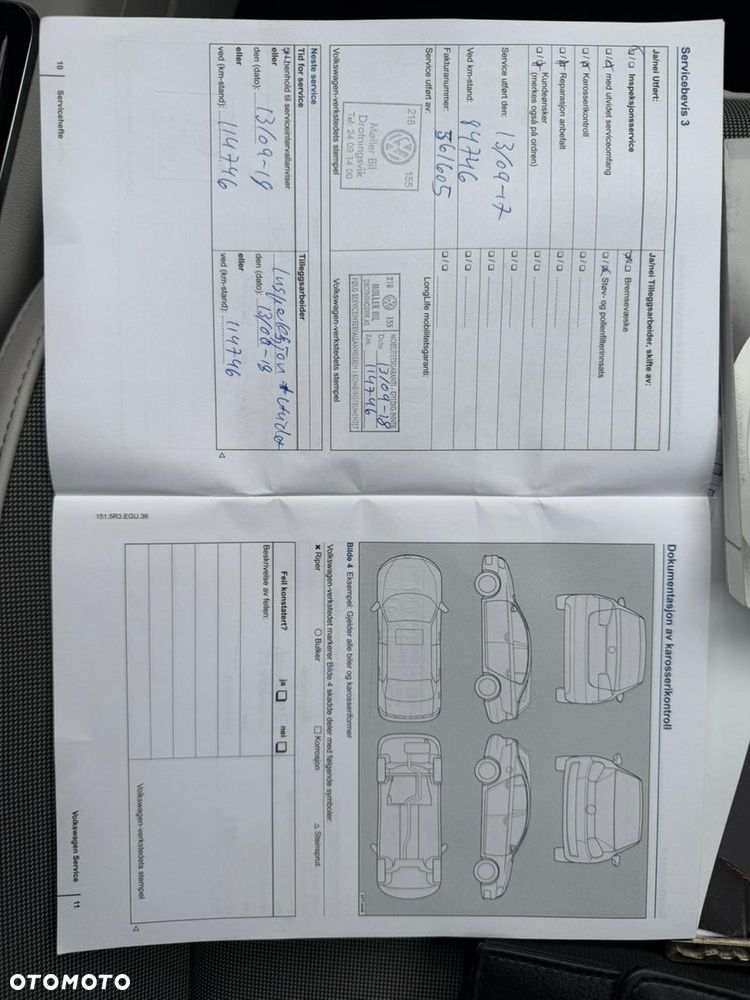 Servicebevis 3
Ja/nei Utført:
Inspeksjonsservice
med utvidet serviceomfang
Karosserikontroll
Reparasjon anbefalt
Kundeønsker
(merkes også på ordren)
Service utført den: 13/09-17
Ved km-stand: 84746
Fakturanummer: 361605
Service utført av:
218 155
Møller Bil
Drotningsvik
Tel: 24 03 14 00
Volkswagen-verkstedets stempel
Ja/nei Tilleggsarbeider, skifte av:
Bremsevæske
Støv- og pollenfilterinnsats
LongLife mobilitetsgaranti:
218 155
MØLLER BIL
MOBILITETSGARANTI - GYLDIG INNTIL
Dato 13/09-18
KM: 114746
Volkswagen-verkstedets stempel
Neste service
Tid for service
I henhold til serviceintervallanviser
eller
den (dato): 13/09-18
eller
ved (km-stand): 114746
Tilleggsarbeider
Inspeksjon + utvidet
den (dato): 13/09-18
eller
ved (km-stand): 114746
10 Servicehefte
Dokumentasjon av karosserikontroll
Bilde 4 Eksempel: Gjelder alle biler og karosseriformer
Volkswagen-verkstedet markerer Bilde 4 skadde deler med følgende symboler:
Riper Bulker Korrosjon Steinsprut
Feil konstatert? ja nei
Beskrivelse av feilen:
Volkswagen-verkstedets stempel
151.5R3.EGU.36
Volkswagen Service 11
OTOMOTO